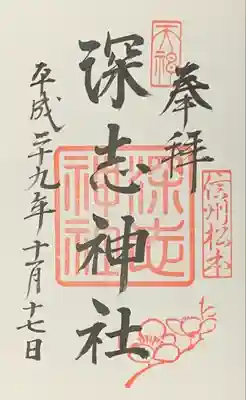 奉拝
信州松本
天神
深志神社
深志
神社
平成二十九年十一月十七日